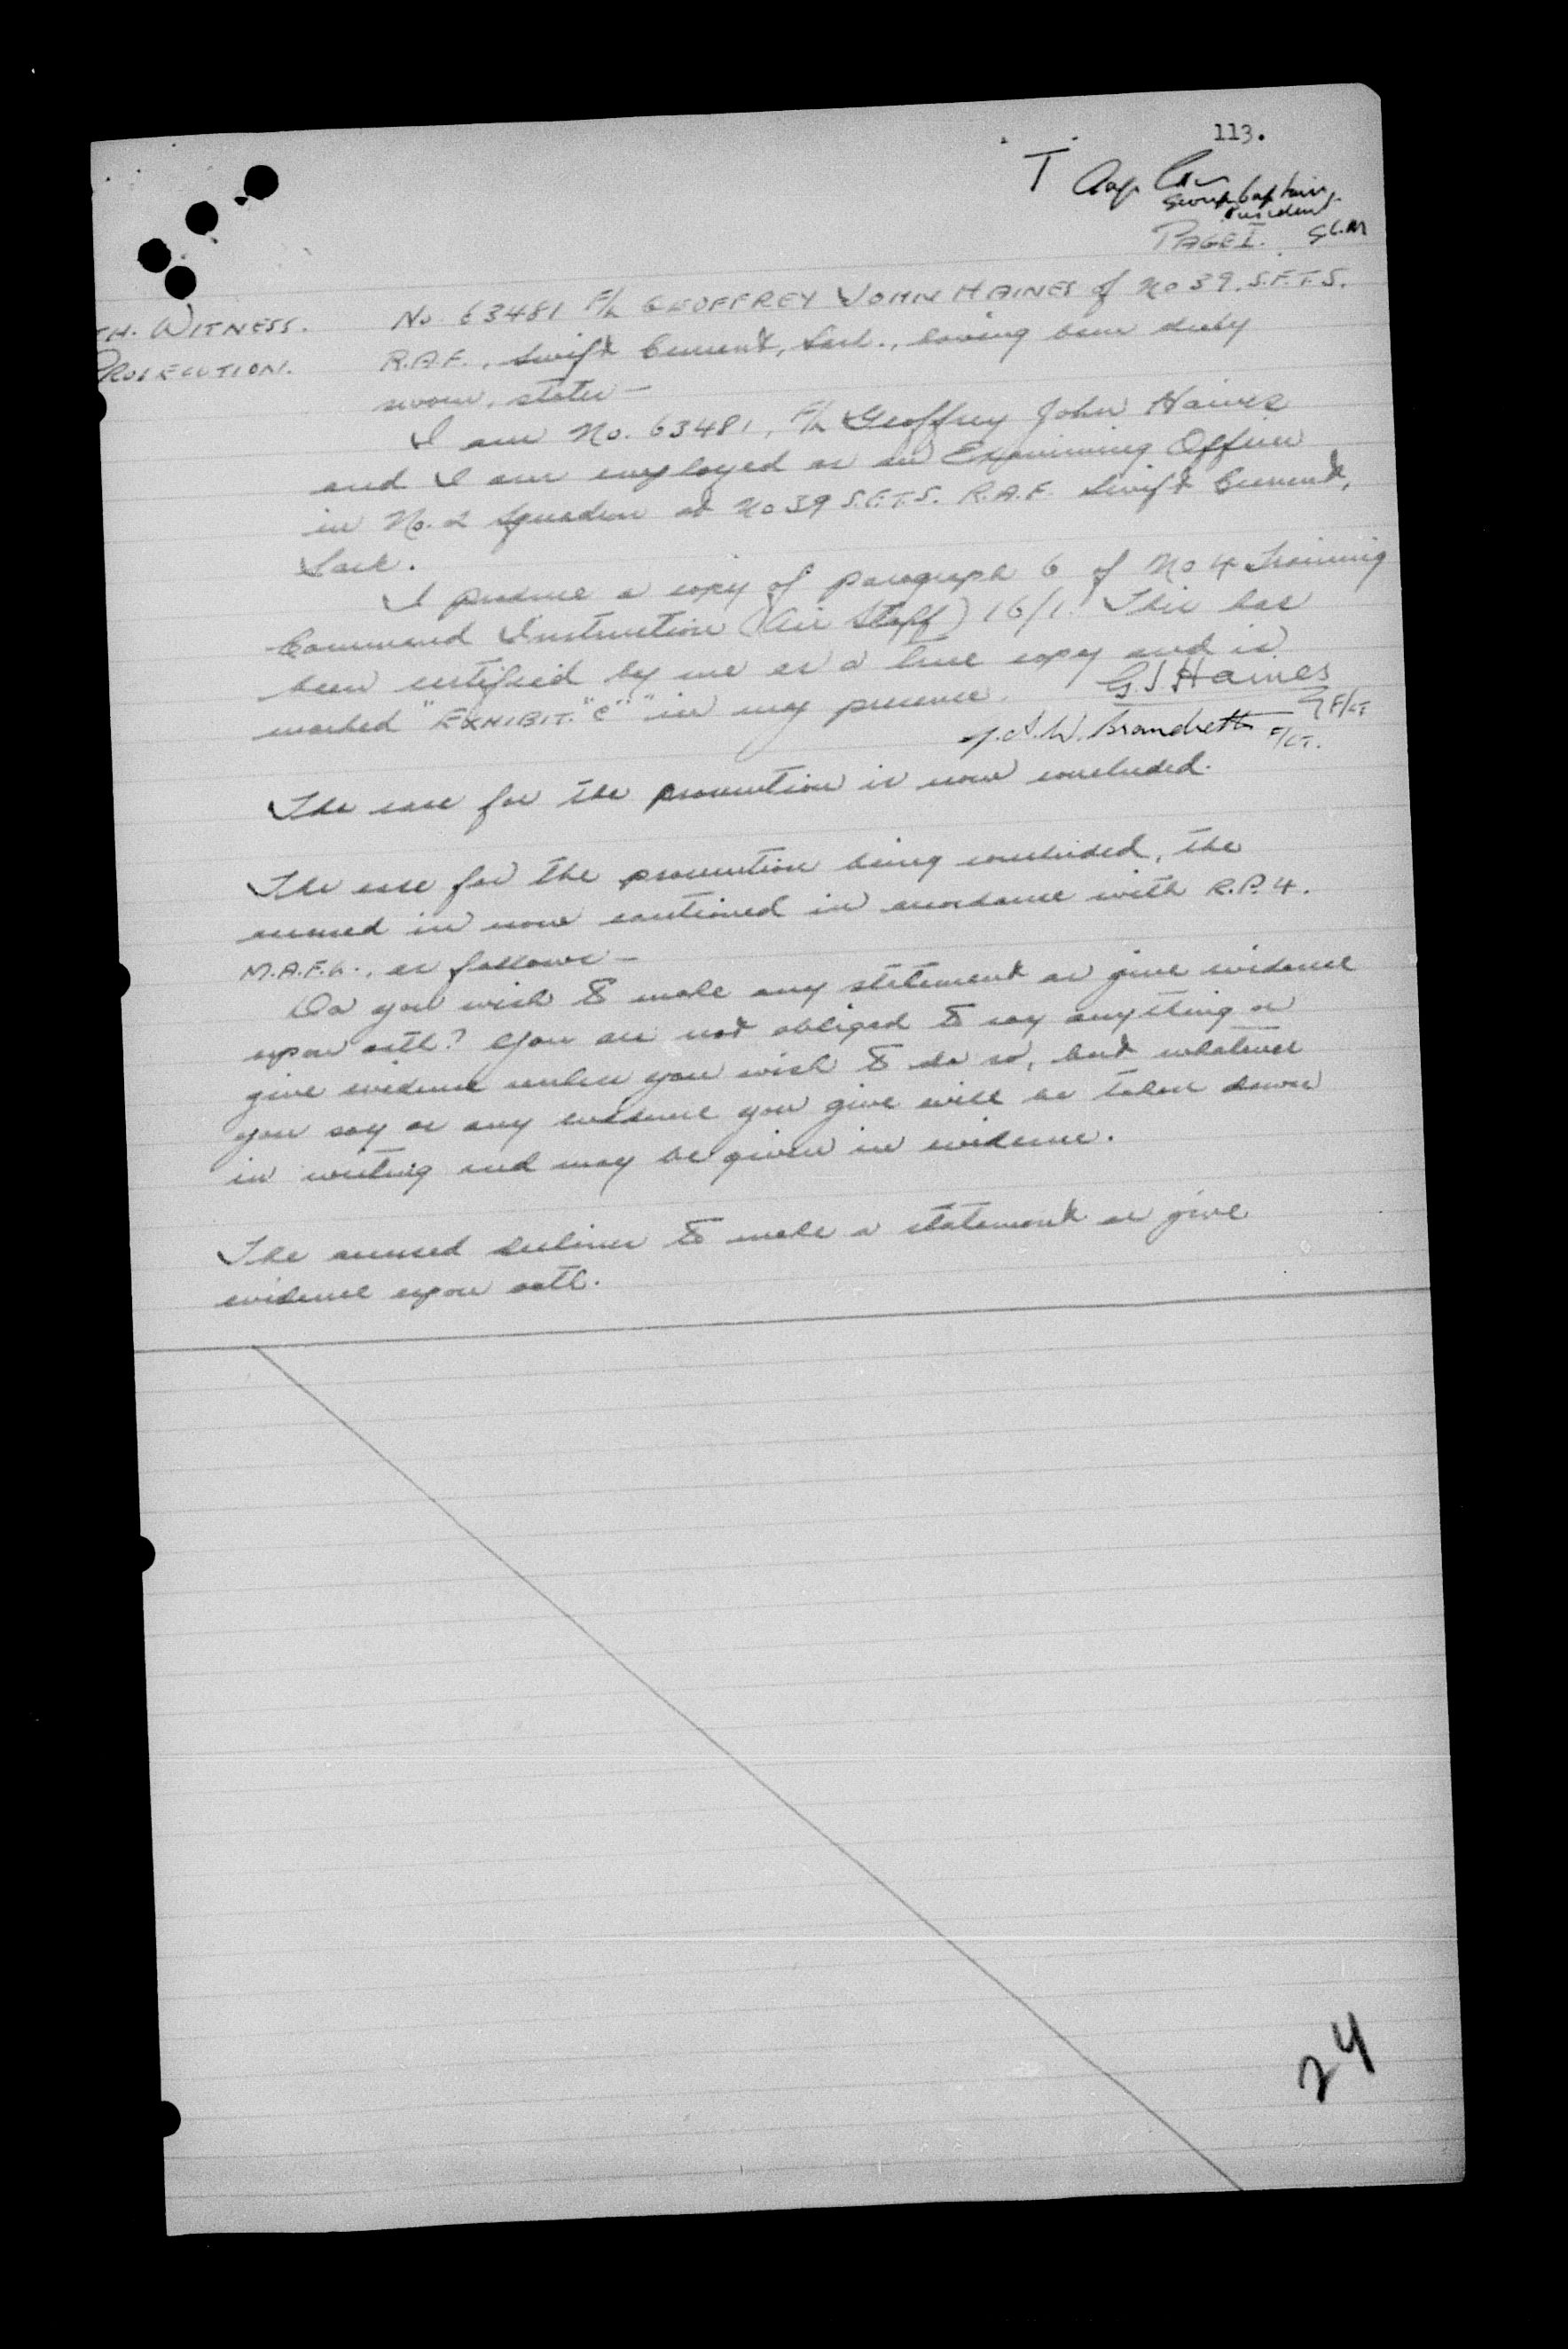 113.
T
Group Captain
President
PAGE I. G.C.M
TH. WITNESS.
PROSECUTION.
No 63481 F/L GEOFFREY JOHN HAINES of No 39. S.F.T.S.
R.A.F., Swift Current, Sask., having been duly
sworn, states —
I am No. 63481, F/L Geoffrey John Haines
and I am employed as an Examining Officer
in No. 2 Squadron at No 39 S.F.T.S. R.A.F. Swift Current,
Sask.
I produce a copy of paragraph 6 of No 4 Training
Command Instruction (Air Staff) 16/1. This has
been certified by me as a true copy and is
marked "EXHIBIT. "C"" in my presence.
G.J. Haines
F/LT
W. Brandreth F/LT.
The case for the prosecution is now concluded.
The case for the prosecution being concluded, the
accused is now cautioned in accordance with R.P. 4.
M.A.F.L., as follows —
Do you wish to make any statement or give evidence
upon oath? You are not obliged to say anything or
give evidence unless you wish to do so, but whatever
you say or any evidence you give will be taken down
in writing and may be given in evidence.
The accused declines to make a statement or give
evidence upon oath.
24